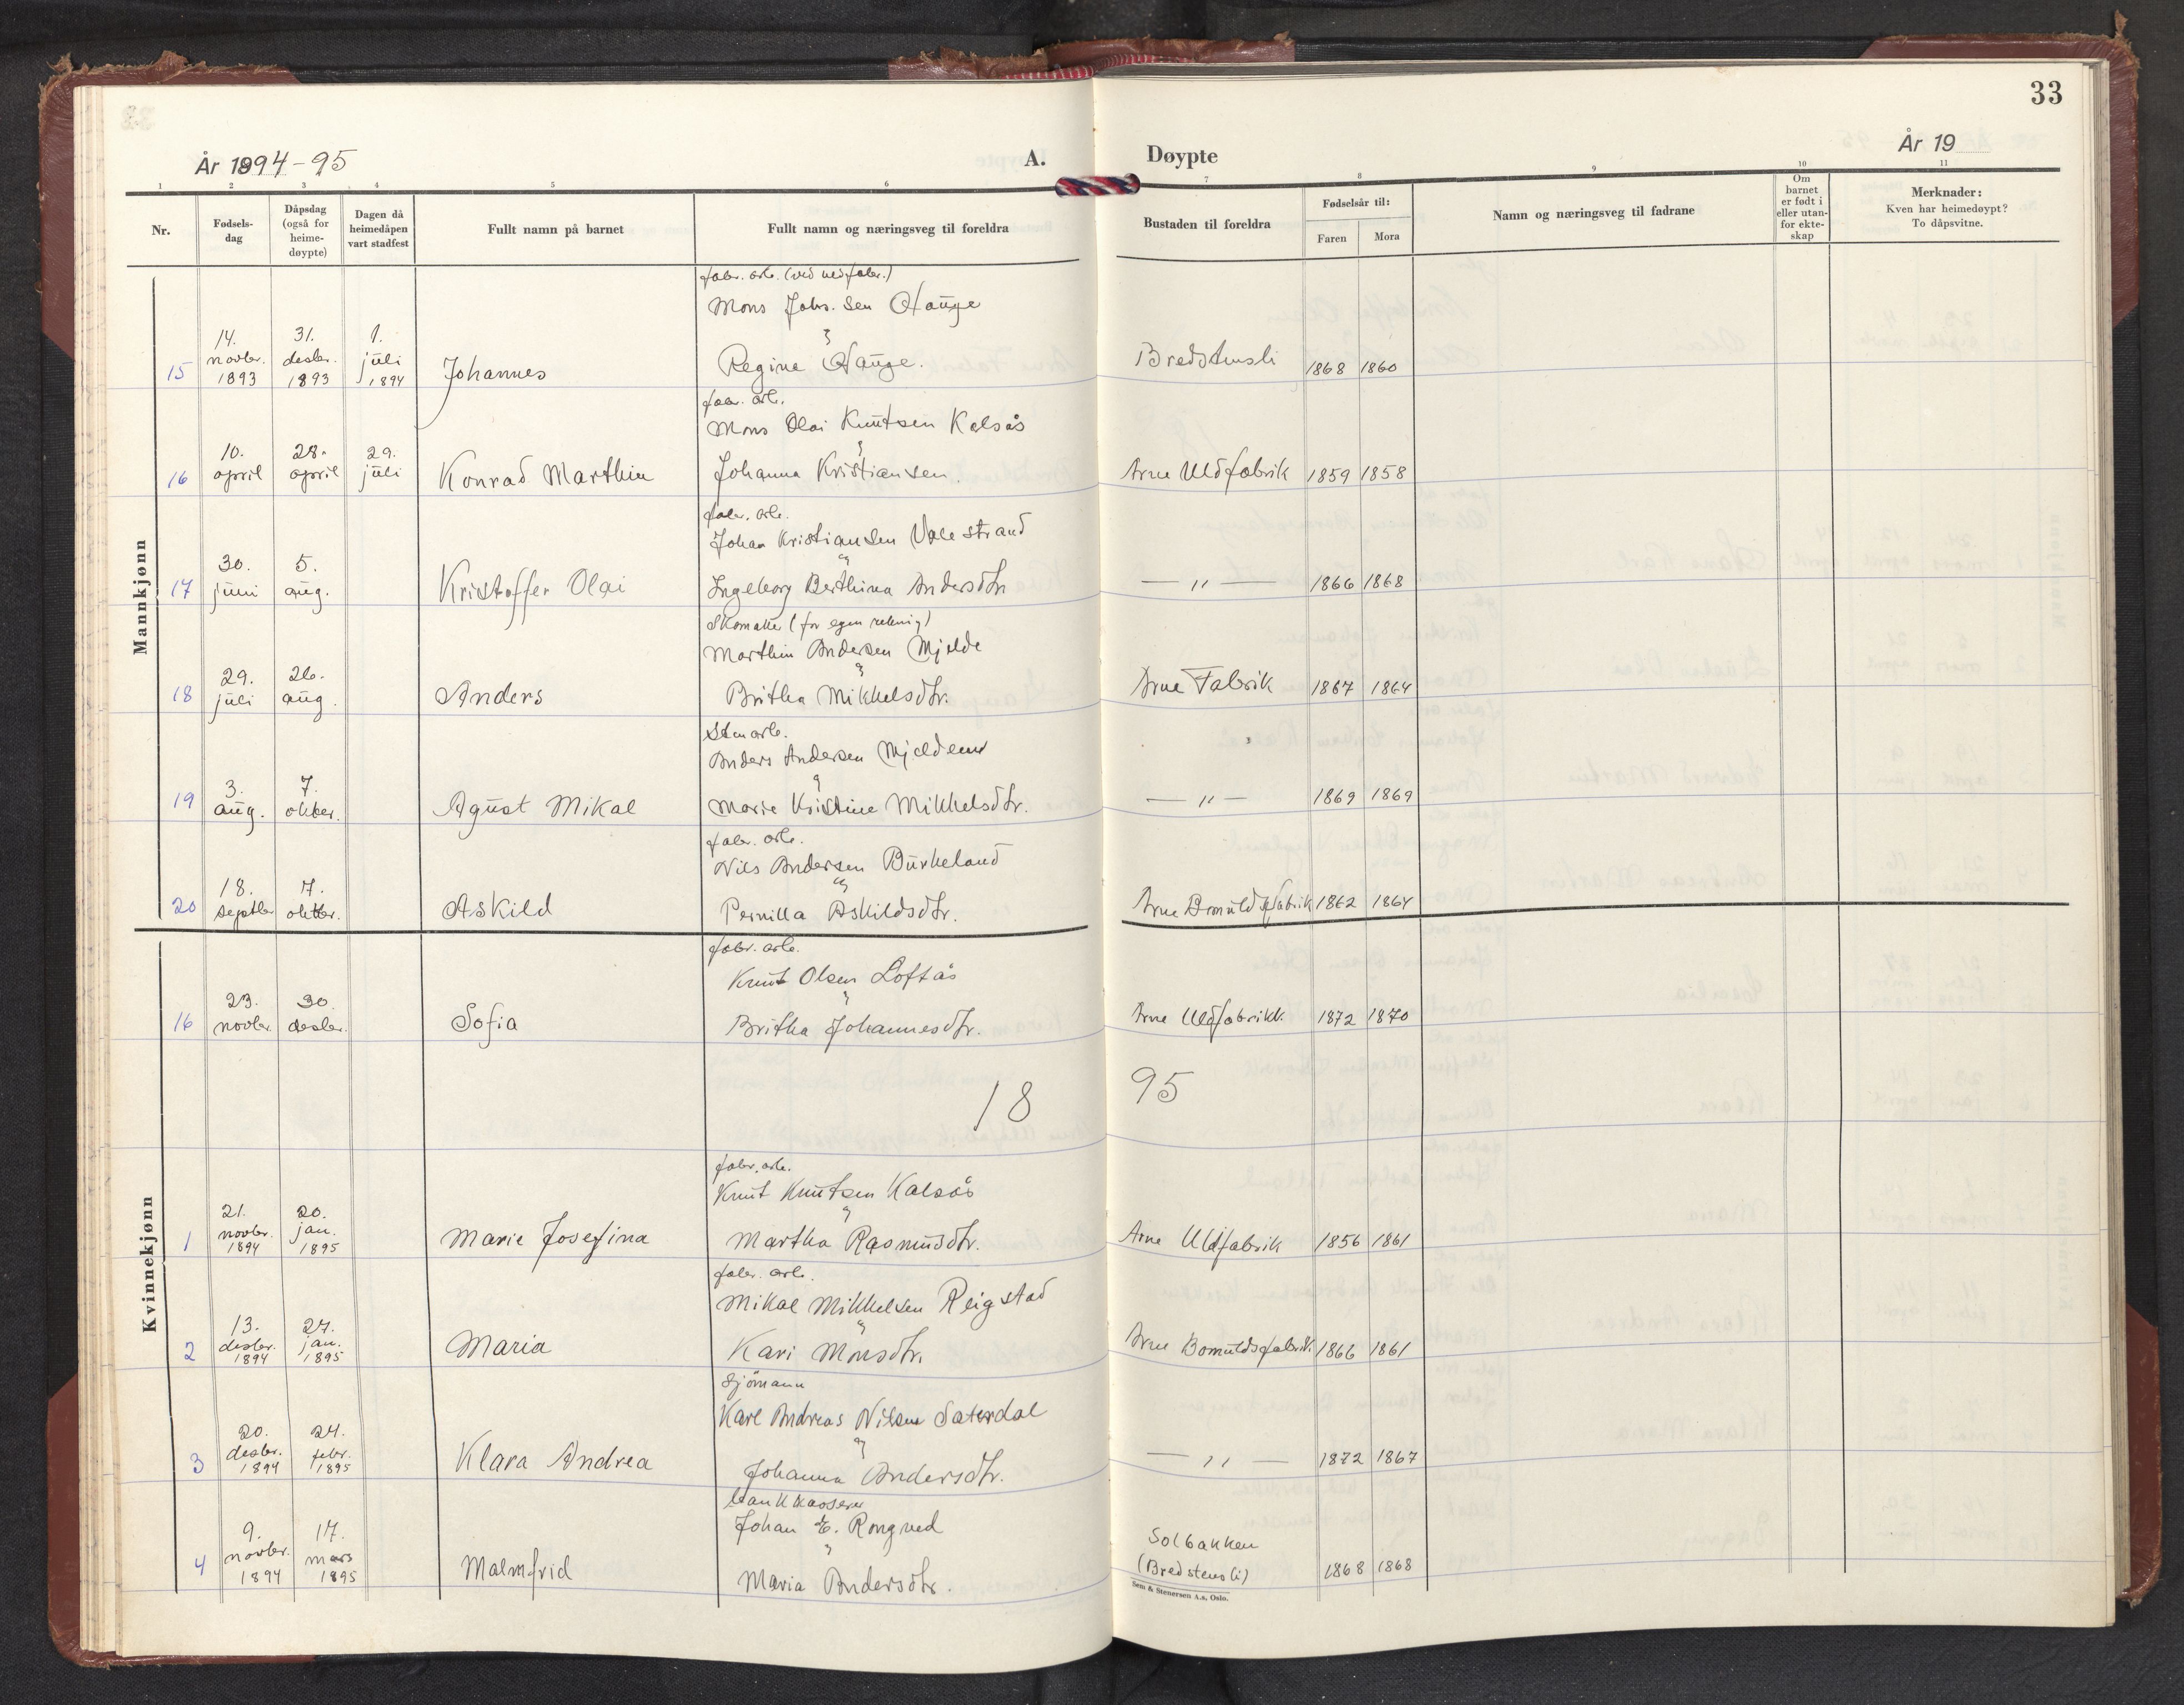 33
År 1894-95
A.
Døypte
År 19
1 2 3 4 5 6 7 8 9 10 11
Nr.
Fødsels-
dag
Dåpsdag
(også for
heime-
døypte)
Dagen då
heimedåpen
vart stadfest
Fullt namn på barnet
Fullt namn og næringsveg til foreldra
Bustaden til foreldra
Fødselsår til:
Faren Mora
Namn og næringsveg til fadrane
Om
barnet
er født i
eller utan-
for ekte-
skap
Merknader:
Kven har heimedøypt?
To dåpsvitne.
Mannkjønn
fabr. arb. (ved uldfabr.)
Mons Johs. sen Hauge
15 14. novbr. 1893 31. desbr. 1893 1. juli 1894 Johannes Regine Hauge. Bredstensli 1868 1860
fabr. arb.
Mons Olai Knutsen Kalsås
16 10. april 28. april 29. juli Konrad Marthin Johanna Kristiansen. Arne Uldfabrik 1859 1858
fabr. arb.
Johan Kristiansen Valestrand
17 30. juni 5. aug. Kristoffer Olai Ingeborg Berthina Andersdtr — " — 1866 1868
Skomaker (for egen rekning)
Marthin Andersen Mjelde
18 29. juli 26. aug. Anders Britha Mikkelsdtr. Arne Fabrik 1867 1864
Stenarb.
Anders Andersen Mjeldeim
19 3. aug. 7. oktbr. Agust Mikal Marie Kristine Mikkelsdtr. — " — 1869 1869
fabr. arb.
Nils Andersen Burkeland
20 18. septbr 7. oktbr. Askild Pernilla Askildsdtr. Arne Bomuldsfabrik 1862 1864
Kvinnekjønn
fabr. arb.
Knut Olsen Loftås
16 23. novbr. 30. desbr. Sofia Britha Johannesdtr. Arne Uldfabrikk 1872 1870
18 95
fabr. arb.
Knut Knutsen Kalsås
1 21. novbr. 1894 20. jan. 1895 Marie Josefina Martha Rasmusdtr. Arne Uldfabrik 1856 1861
fabr. arb.
Mikal Mikkelsen Reigstad
2 13. desbr. 1894 27. jan. 1895 Maria Kari Monsdtr. Arne Bomuldsfabrik 1866 1861
Sjömann
Karl Andreas Nilsen Saterdal
3 20. desbr. 1894 24. febr. 1895 Klara Andrea Johanna Andersdtr. — " — 1872 1867
bankkasserer
Johan E. Rongved
4 9. novbr. 1894 17. mars 1895 Malmfrid Maria Andersdtr. Solbakken (Bredstensli) 1868 1868
Sem & Stenersen A.s, Oslo.